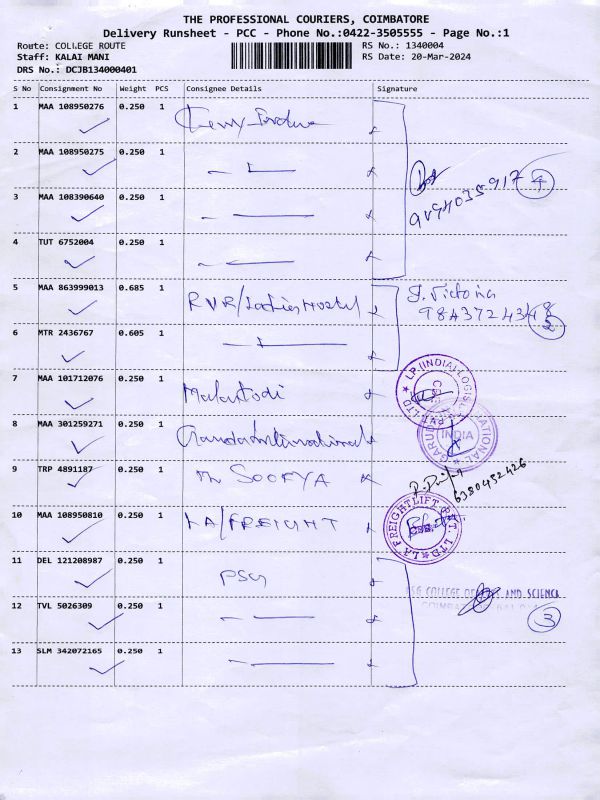 THE PROFESSIONAL COURIERS, COIMBATORE
Delivery Runsheet - PCC - Phone No.:0422-3505555 - Page No.:1
Route: COLLEGE ROUTE RS No.: 1340004
Staff: KALAI MANI RS Date: 20-Mar-2024
DRS No.: DCJB134000401
S No Consignment No Weight PCS Consignee Details Signature
1 MAA 108950276 0.250 1
2 MAA 108950275 0.250 1
3 MAA 108390640 0.250 1
4
4 TUT 6752004 0.250 1
5 MAA 863999013 0.685 1 RVR/Ladies Hostel J. Victoria
6 MTR 2436767 0.605 1
7 MAA 101712076 0.250 1
LP (INDIA)
8 MAA 301259271 0.250 1
INDIA
9 TRP 4891187 0.250 1 M SOORYA
6380452426
10 MAA 108950810 0.250 1 LA/FREIGHT
LA FREIGHTLIFT PVT. LTD
11 DEL 121208987 0.250 1 PSG
PSG COLLEGE OF AND SCIENCE
12 TVL 5026309 0.250 1
3
13 SLM 342072165 0.250 1